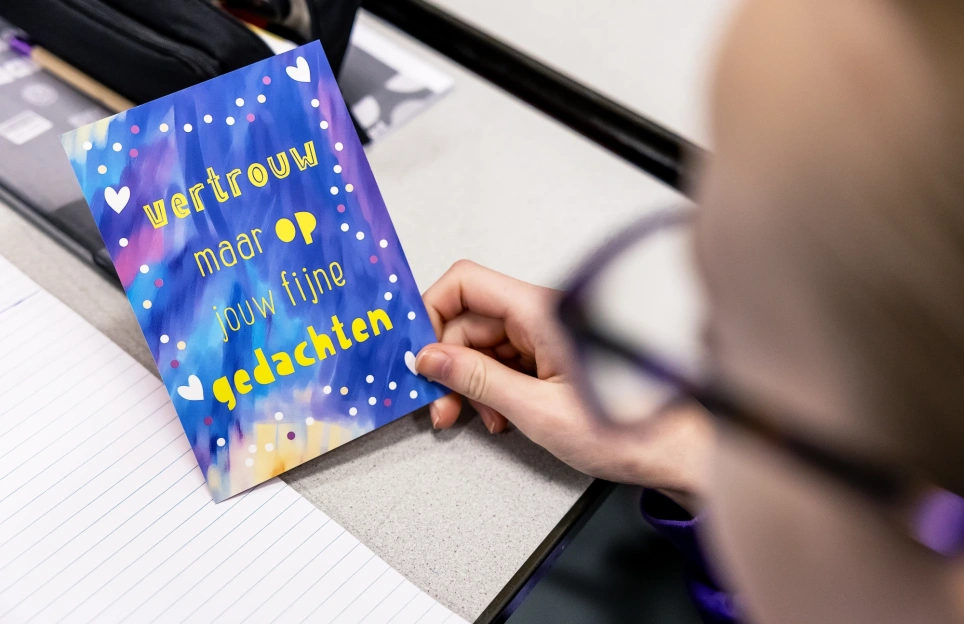 vertrouw
maar op
jouw fijne
gedachten